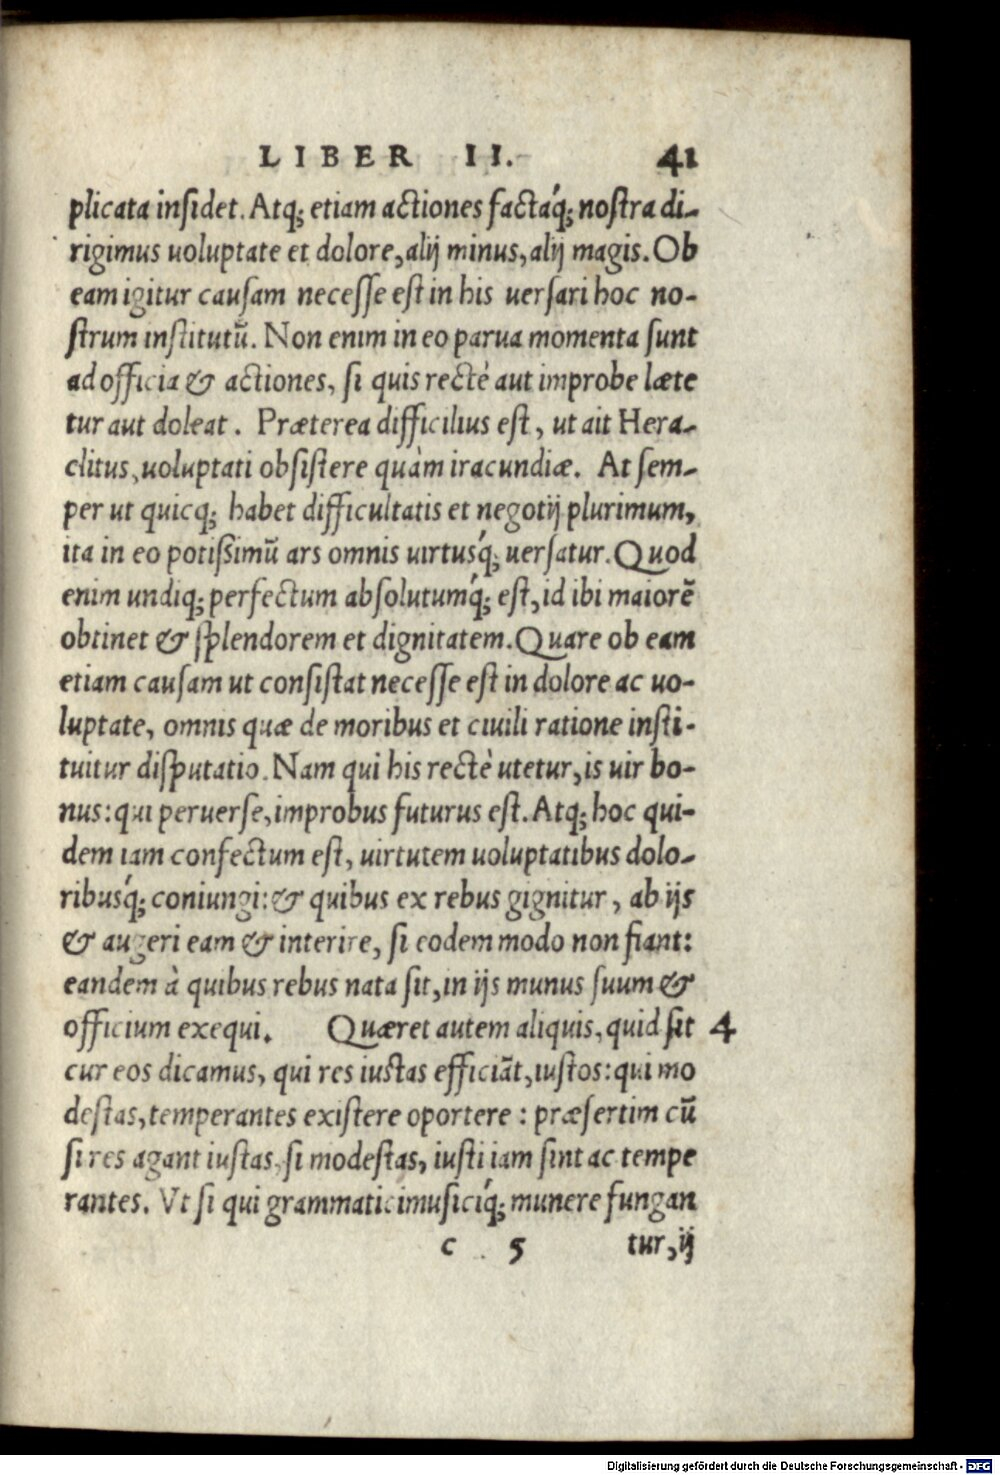 LIBER II. 41
plicata insidet. Atq; etiam actiones factáq; nostra di-
rigimus uoluptate et dolore, alij minus, alij magis. Ob
eam igitur causam necesse est in his uersari hoc no-
strum institutũ. Non enim in eo parua momenta sunt
ad officia & actiones, si quis rectè aut improbe læte
tur aut doleat. Præterea difficilius est, ut ait Hera-
clitus, uoluptati obsistere quàm iracundiæ. At sem-
per ut quicq; habet difficultatis et negotij plurimum,
ita in eo potißimũ ars omnis uirtusq́; uersatur. Quod
enim undiq; perfectum absolutumq́; est, id ibi maiorẽ
obtinet & splendorem et dignitatem. Quare ob eam
etiam causam ut consistat necesse est in dolore ac uo-
luptate, omnis quæ de moribus et ciuili ratione insti-
tuitur disputatio. Nam qui his rectè utetur, is uir bo-
nus: qui peruerse, improbus futurus est. Atq; hoc qui-
dem iam confectum est, uirtutem uoluptatibus dolo-
ribusq́; coniungi: & quibus ex rebus gignitur, ab ijs
& augeri eam & interire, si eodem modo non fiant:
eandem à quibus rebus nata sit, in ijs munus suum &
officium exequi. Quæret autem aliquis, quid sit 4
cur eos dicamus, qui res iustas efficiãt, iustos: qui mo
destas, temperantes existere oportere: præsertim cũ
si res agant iustas, si modestas, iusti iam sint ac tempe
rantes. Vt si qui grammatici musiciq́; munere fungan
c 5 tur, ij
Digitalisierung gefördert durch die Deutsche Forschungsgemeinschaft - DFG